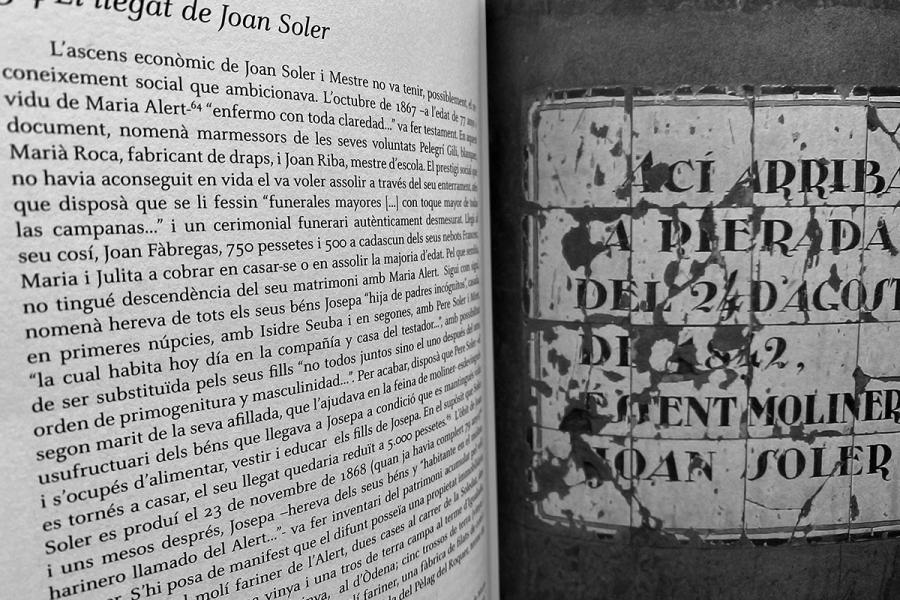 El llegat de Joan Soler
L'ascens econòmic de Joan Soler i Mestre no va tenir, possiblement, el re-
coneixement social que ambicionava. L'octubre de 1867 –a l'edat de 77 anys i
vidu de Maria Alert–⁶⁴ “enfermo con toda claredad...” va fer testament. En aquest
document, nomenà marmessors de les seves voluntats Pelegrí Gili, blanquer,
Marià Roca, fabricant de draps, i Joan Riba, mestre d'escola. El prestigi social que
no havia aconseguit en vida el va voler assolir a través del seu enterrament,
que disposà que se li fessin “funerales mayores [...] con toque mayor de todas
las campanas...” i un cerimonial funerari autènticament desmesurat. Llega al
seu cosí, Joan Fàbregas, 750 pessetes i 500 a cadascun dels seus nebots Francesc,
Maria i Julita a cobrar en casar-se o en assolir la majoria d'edat. Pel que sembla,
no tingué descendència del seu matrimoni amb Maria Alert. Sigui com sigui,
nomenà hereva de tots els seus béns Josepa “hija de padres incógnitos”, casada
en primeres núpcies, amb Isidre Seuba i en segones, amb Pere Soler i Miret,
“la cual habita hoy día en la compañía y casa del testador...”, amb possibilitat
de ser substituïda pels seus fills “no todos juntos sino el uno después del otro
orden de primogenitura y masculinidad...”. Per acabar, disposà que Pere Soler –
segon marit de la seva afillada, que l'ajudava en la feina de moliner– esdevingués
usufructuari dels béns que llegava a Josepa a condició que es mantingués vidu
i s'ocupés d'alimentar, vestir i educar els fills de Josepa. En el supòsit que
es tornés a casar, el seu llegat quedaria reduït a 5.000 pessetes.⁶⁵ L'òbit de Joan
Soler es produí el 23 de novembre de 1868 (quan ja havia complert 79 anys)
i uns mesos després, Josepa –hereva dels seus béns y “habitante en el molino
harinero llamado del Alert...”– va fer inventari del patrimoni acumulat pel
S'hi posa de manifest que el difunt posseïa una propietat immobiliària
molí fariner de l'Alert, dues cases al carrer de la Soledat,
vinya i una tros de terra campa al terme d'Igualada,
vinya, al d'Òdena; cinc trossos de terra
fariner, una fàbrica de filats de
del Pèlag del Roquet,
ACÍ ARRIBA
LA PIERADA
DEL 24 D'AGOST
DE 1842,
ESSENT MOLINER
JOAN SOLER